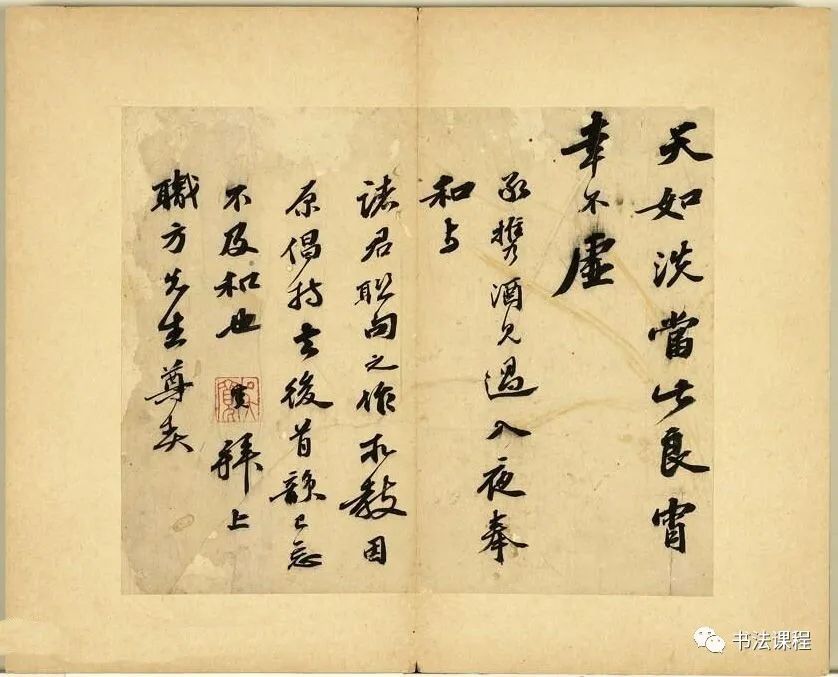 天如洗當此良宵
幸不虛
承攜酒見過入夜奉
和与
諸君聯句之作求教因
原倡持去後首韻已忘
不及和也 寬拜上
職方先生尊契
书法课程